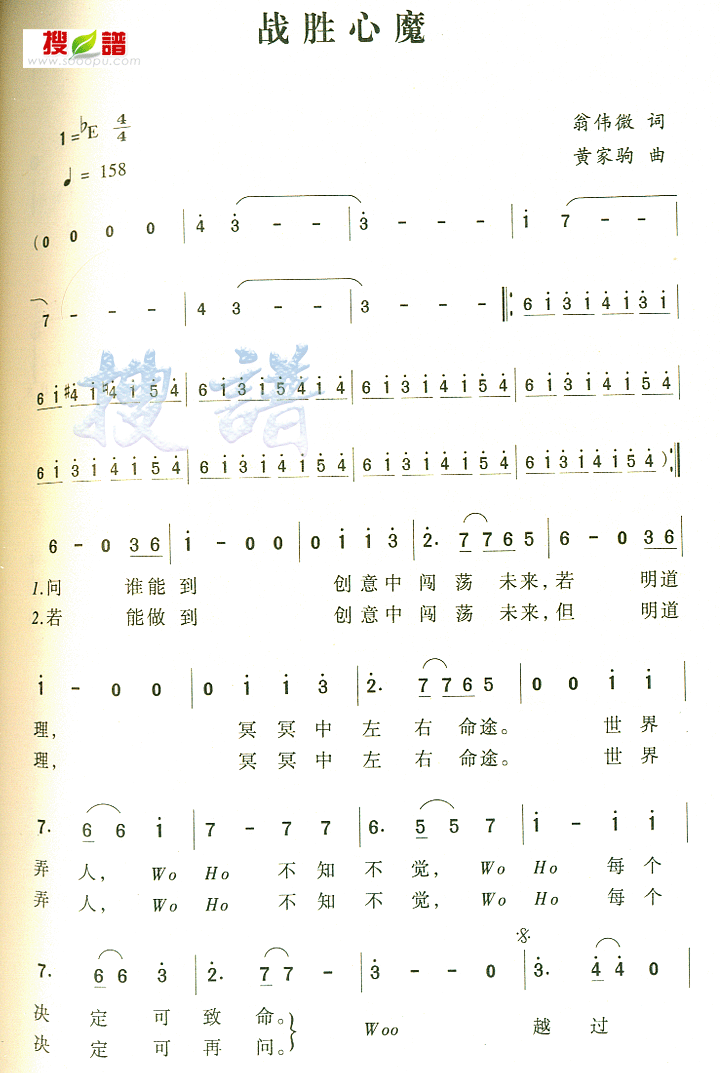 搜谱
www.sooopu.com
战胜心魔
1=♭E 4/4
翁伟微 词
♩= 158
黄家驹 曲
(0 0 0 0 | 4̇ 3̇ - - | 3̇ - - - | i 7 - - |
7 - - - | 4 3 - - | 3 - - - ‖: 6 i 3̇ i 4̇ i 3̇ i |
6 i #4̇ i ♮4̇ i 5̇ 4̇ | 6 i 3̇ i 5̇ 4̇ i 4̇ | 6 i 3̇ i 4̇ i 5̇ 4̇ | 6 i 3̇ i 4̇ i 5̇ 4̇ |
6 i 3̇ i 4̇ i 5̇ 4̇ | 6 i 3̇ i 4̇ i 5̇ 4̇ | 6 i 3̇ i 4̇ i 5̇ 4̇ | 6 i 3̇ i 4̇ i 5̇ 4̇ ) :‖
6 - 0 3 6 | i - 0 0 | 0 i i 3̇ | 2̇. 7 7 6 5 | 6 - 0 3 6 |
1.问 谁能到 创意中闯荡未来,若 明道
2.若 能做到 创意中闯荡未来,但 明道
i - 0 0 | 0 i i 3̇ | 2̇. 7 7 6 5 | 0 0 i i |
理, 冥冥中左右命途。 世界
理, 冥冥中左右命途。 世界
7. 6 6 i | 7 - 7 7 | 6. 5 5 7 | i - i i |
弄人, Wo Ho 不知不觉, Wo Ho 每个
弄人, Wo Ho 不知不觉, Wo Ho 每个
7. 6 6 3̇ | 2̇. 7 7 - | 3̇ - - 0 | 3̇. 4̇ 4̇ 0
决定可致命。 Woo 越过
决定可再问。